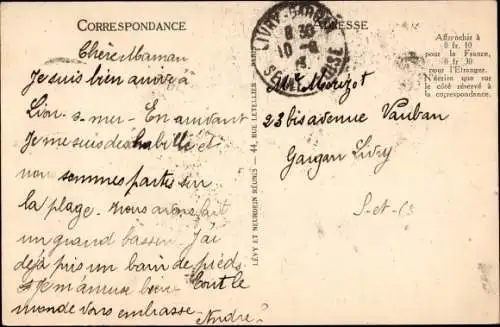 CORRESPONDANCE
ADRESSE
Affranchir à
0 fr. 10
pour la France,
0 fr 30
pour l'Etranger.
N'écrire que sur
le côté réservé à
la correspondance.
Chère Maman
Je suis bien arrivé à
Lion-s-mer- En arrivant
Je me suis deshabillé et
nous sommes partis sur
la plage. Nous avons fait
un grand bassin J'ai
déjà pris un bain de pieds
Je m'amuse bien Tout le
monde vous embrasse
André
LÉVY ET NEURDEIN RÉUNIS — 44, RUE LETELLIER
LIVRY-GARGAN
8 30
10 -8
Mme Morizot
23 bis avenue Vauban
Gargan Livry
S-et-O